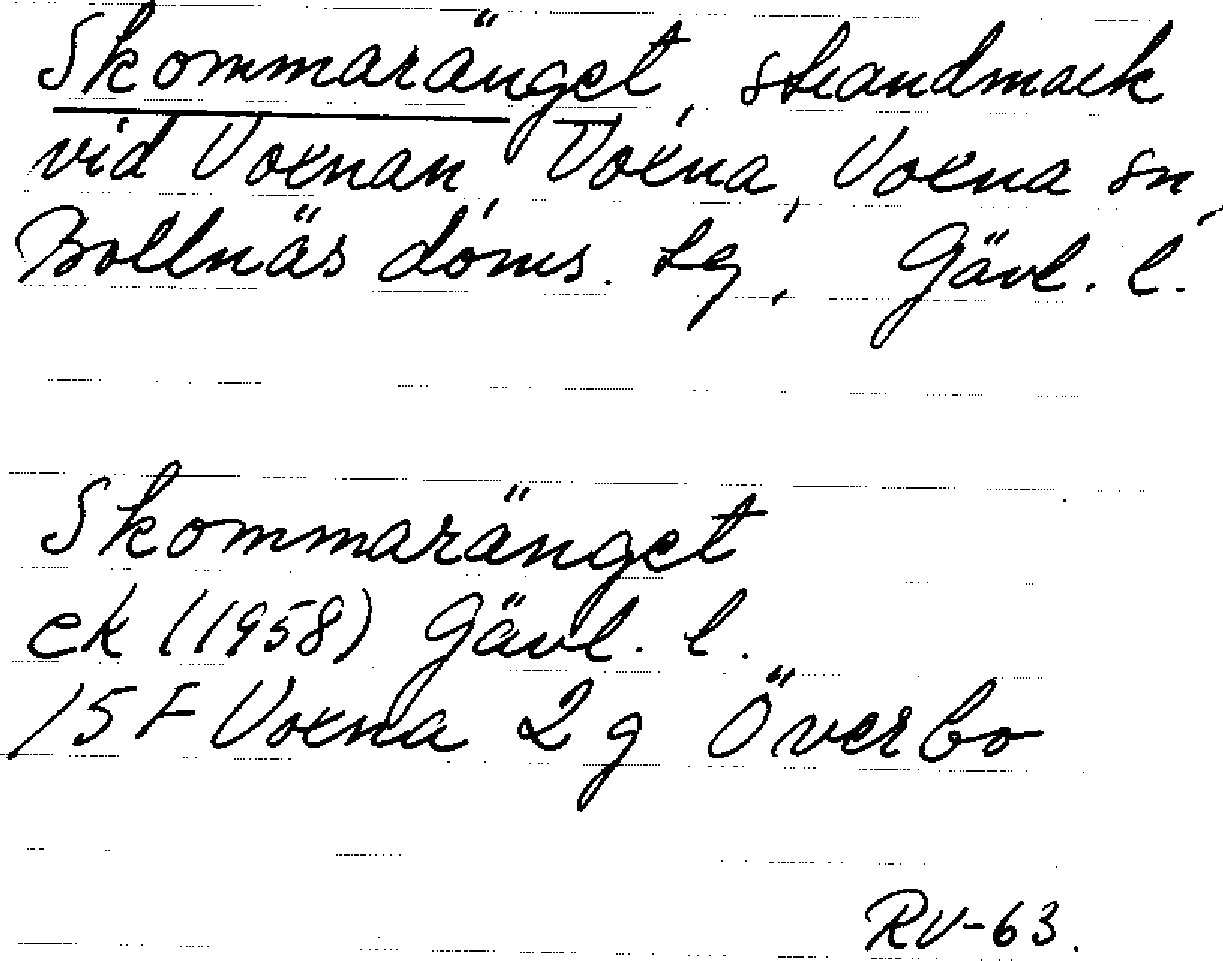 Skommaränget, strandmark
vid Voxnan, Voxna, Voxna sn,
Bollnäs doms. tg, Gävl. l.
Skommaränget
ek (1958) Gävl. l.
15F Voxna 2g Överbo
RV-63.